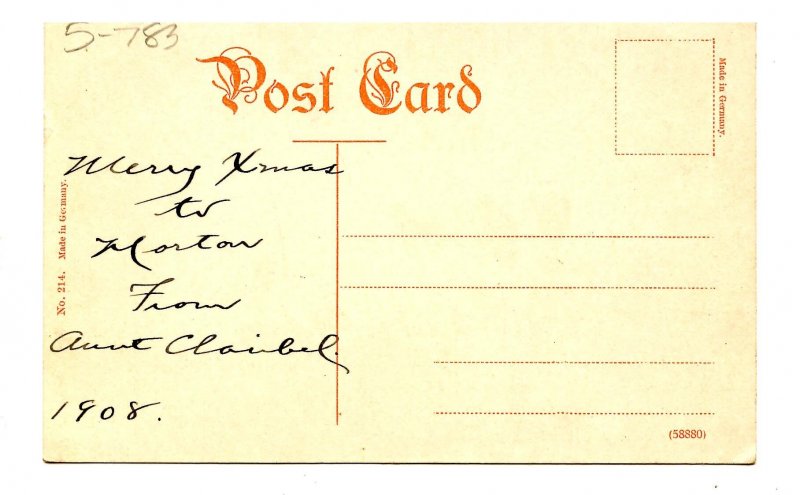 5-783
Post Card
Made in Germany.
No. 214. Made in Germany.
Merry Xmas
to
Morton
From
Aunt Claribel.
1908.
(58880)